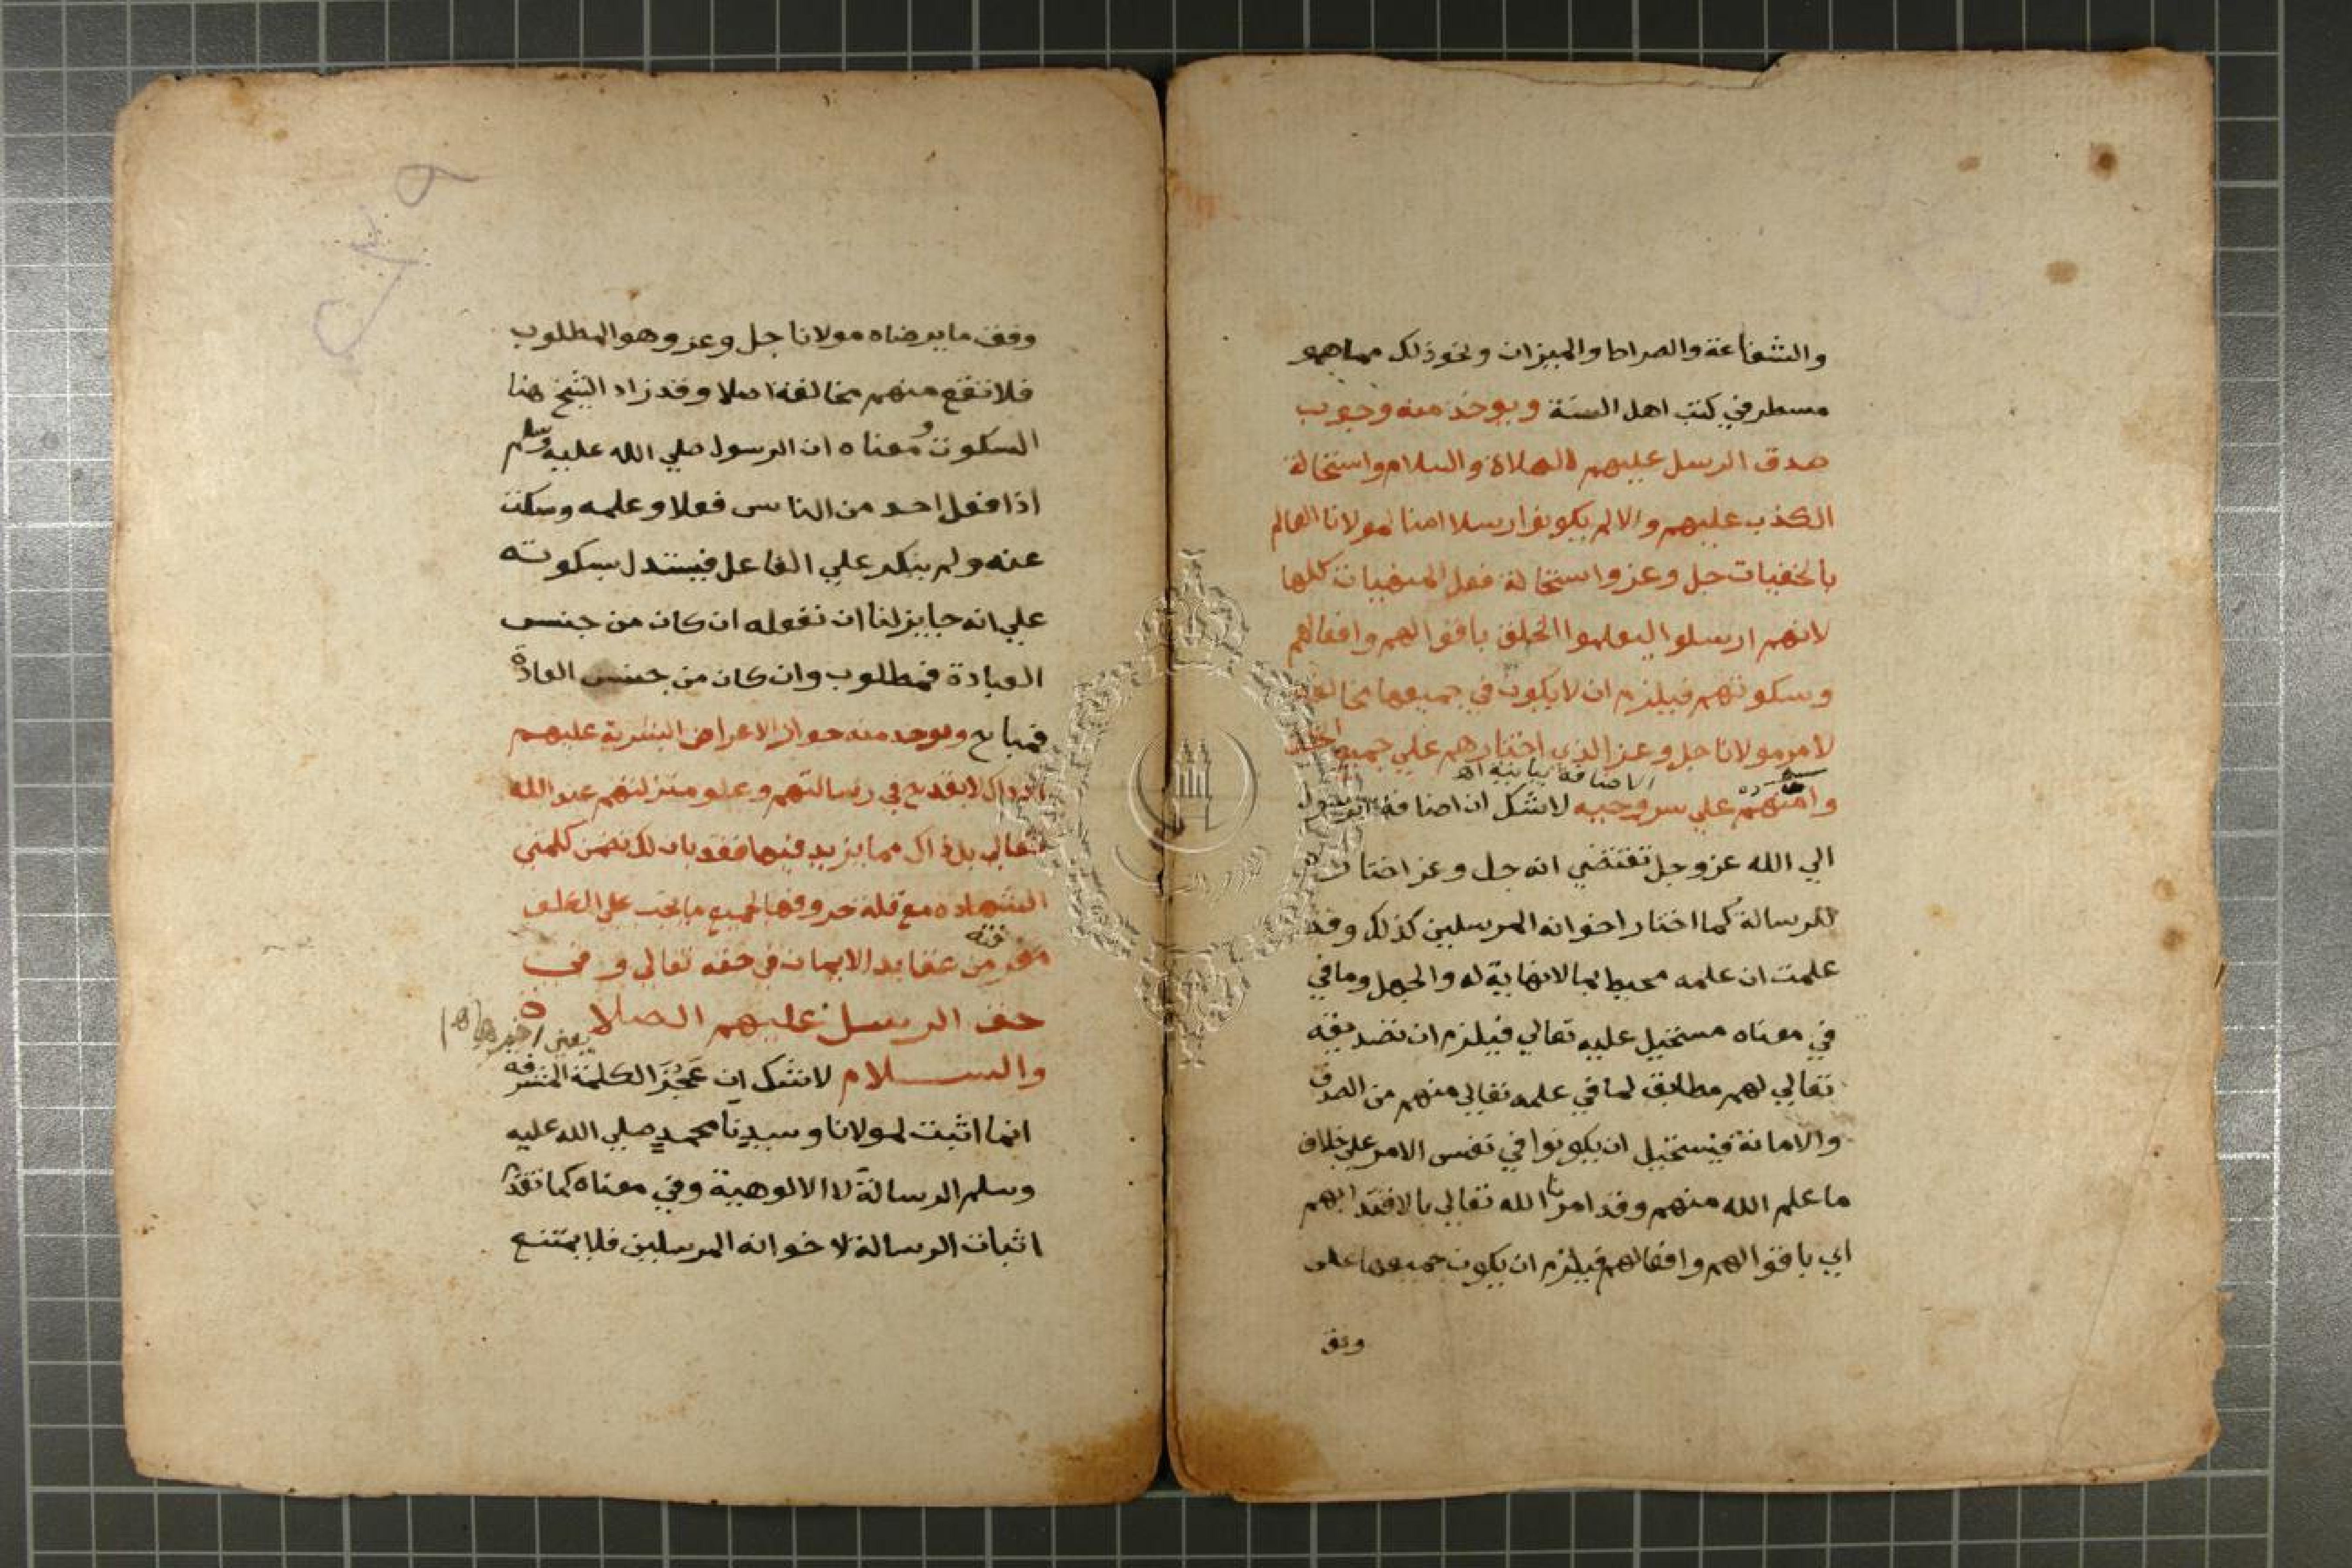 والشفاعة والصراط والميزان ونحو ذلك مما هو
مسطر في كتب اهل السنة ويوخذ منه وجوب
صدق الرسل عليهم الصلاة والسلام واستحالة
الكذب عليهم والا لم يكونوا رسلا امنا لمولانا العالم
بالخفيات جل وعز واستحالة فعل المنهيات كلها
لانهم ارسلوا ليعلموا الخلق باقوالهم وافعالهم
وسكوتهم فيلزم ان لا يكون في جميعها مخالفة
لامر مولانا جل وعز الذي اختارهم على جميع الخلق
الاضافة بيانية اه
وامنهم علي سر وحيه لا شك ان اضافة الرسول
الي الله عز وجل تقتضي انه جل وعز اختاره
للرسالة كما اختار اخوانه المرسلين كذلك وقد
علمت ان علمه محيط بما لا نهاية له والجهل وما في
في معناه مستحيل عليه تعالي فيلزم ان تصديقه
تعالي لهم مطابق لما في علمه تعالي منهم من الصدق
والامانة فيستحيل ان يكونوا في نفس الامر علي خلاف
ما علم الله منهم وقد امرنا الله تعالي بالاقتدا بهم
اي باقوالهم وافعالهم فيلزم ان يكون جميعها على
وفق
وفق ما يرضاه مولانا جل وعز وهو المطلوب
فلا تقع منهم مخالفة اصلا وقد زاد الشيخ هنا
السكوت ومعناه ان الرسول صلي الله عليه وسلم
اذا فعل احد من الناس فعلا وعلمه وسكت
عنه ولم ينكر علي الفاعل فيستدل بسكوته
علي انه جايز لنا ان نفعله ان كان من جنس
العبادة فمطلوب وان كان من جنس العادة
فمباح ويوخذ منه جواز الاعراض البشرية عليهم
اذ ذاك لا يقدح في رسالتهم وعلو منزلتهم عند الله
تعالي بل ذاك مما يزيد فيها فقد بان لك تضمن كلمتي
الشهادة مع قلة حروفها لجميع ما يجب علي المكلف
معرفته من عقايد الايمان في حقه تعالي وفي
حق الرسل عليهم الصلاة
يعني اخيرها اه
والسلام لا شك ان عجز الكلمة المشرفة
انما اثبت لمولانا وسيدنا محمد صلي الله عليه
وسلم الرسالة لا الالوهية وفي معناه كما تقدم
اثبات الرسالة لاخوانه المرسلين فلا يمتنع